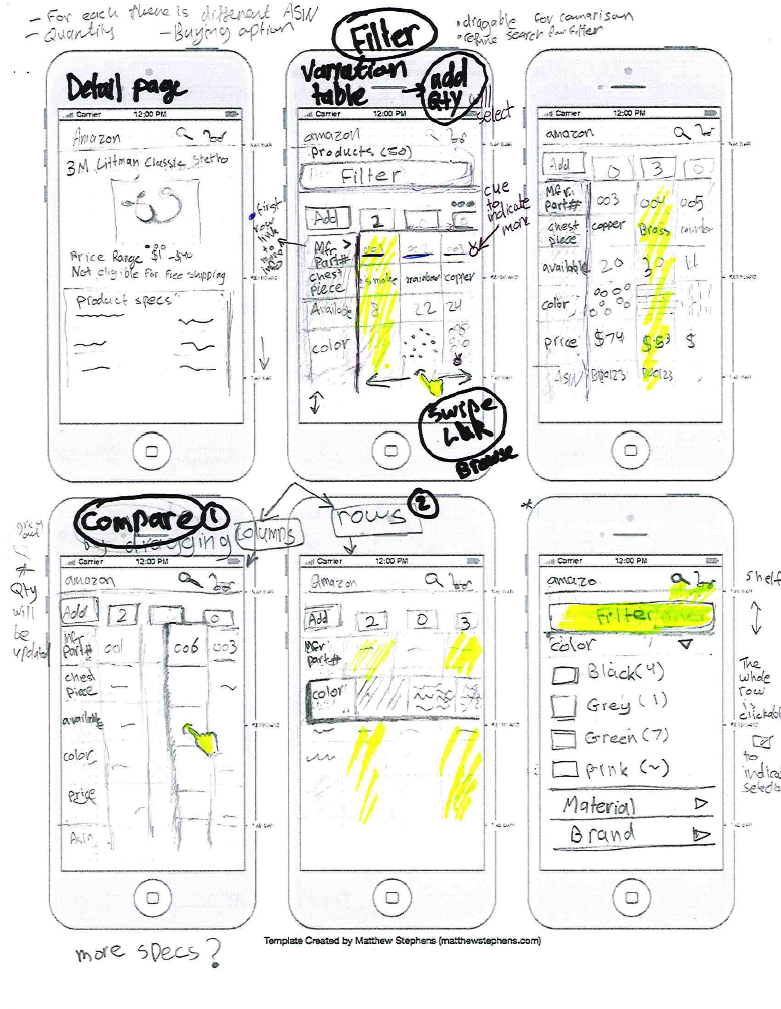 - For each there is different ASIN
- Quantity - Buying option
Filter
• dragable for comparison
• refine search for Filter
Detail page
Carrier 12:00 PM
Amazon
3M Littman Classic Stetho
Price Range $1 - $40
Not eligible For Free Shipping
Product specs
Variation table
add Qty
will select
Carrier 12:00 PM
amazon
Products (50)
Filter
Add 2
Mfr. Part# 001 002 003
chest piece smoke rainbow copper
Available 8 22 24
color
cue to indicate more
first row link to
Swipe L&R
Browse
Carrier 12:00 PM
amazon
Add 0 3 0
Mfr. Part# 003 004 005
chest piece copper Brass rainbow
available 20 30 11
color
price $74 $53 $
ASIN B00123 B00123
Compare 1
by dragging
columns
rows 2
Qty will be updated
Carrier 12:00 PM
amazon
Add 2 0
Mfr Part# 001 006 003
chest piece
available
color
price
Asin
Carrier 12:00 PM
Amazon
Add 2 0 3
Mfr Part#
color
*
Carrier 12:00 PM
amazo
Filter
color
Black (4)
Grey (1)
Green (7)
pink (~)
Material
Brand
shelf
The whole row is clickable
to indicate selected
Template Created by Matthew Stephens (matthewstephens.com)
more specs?